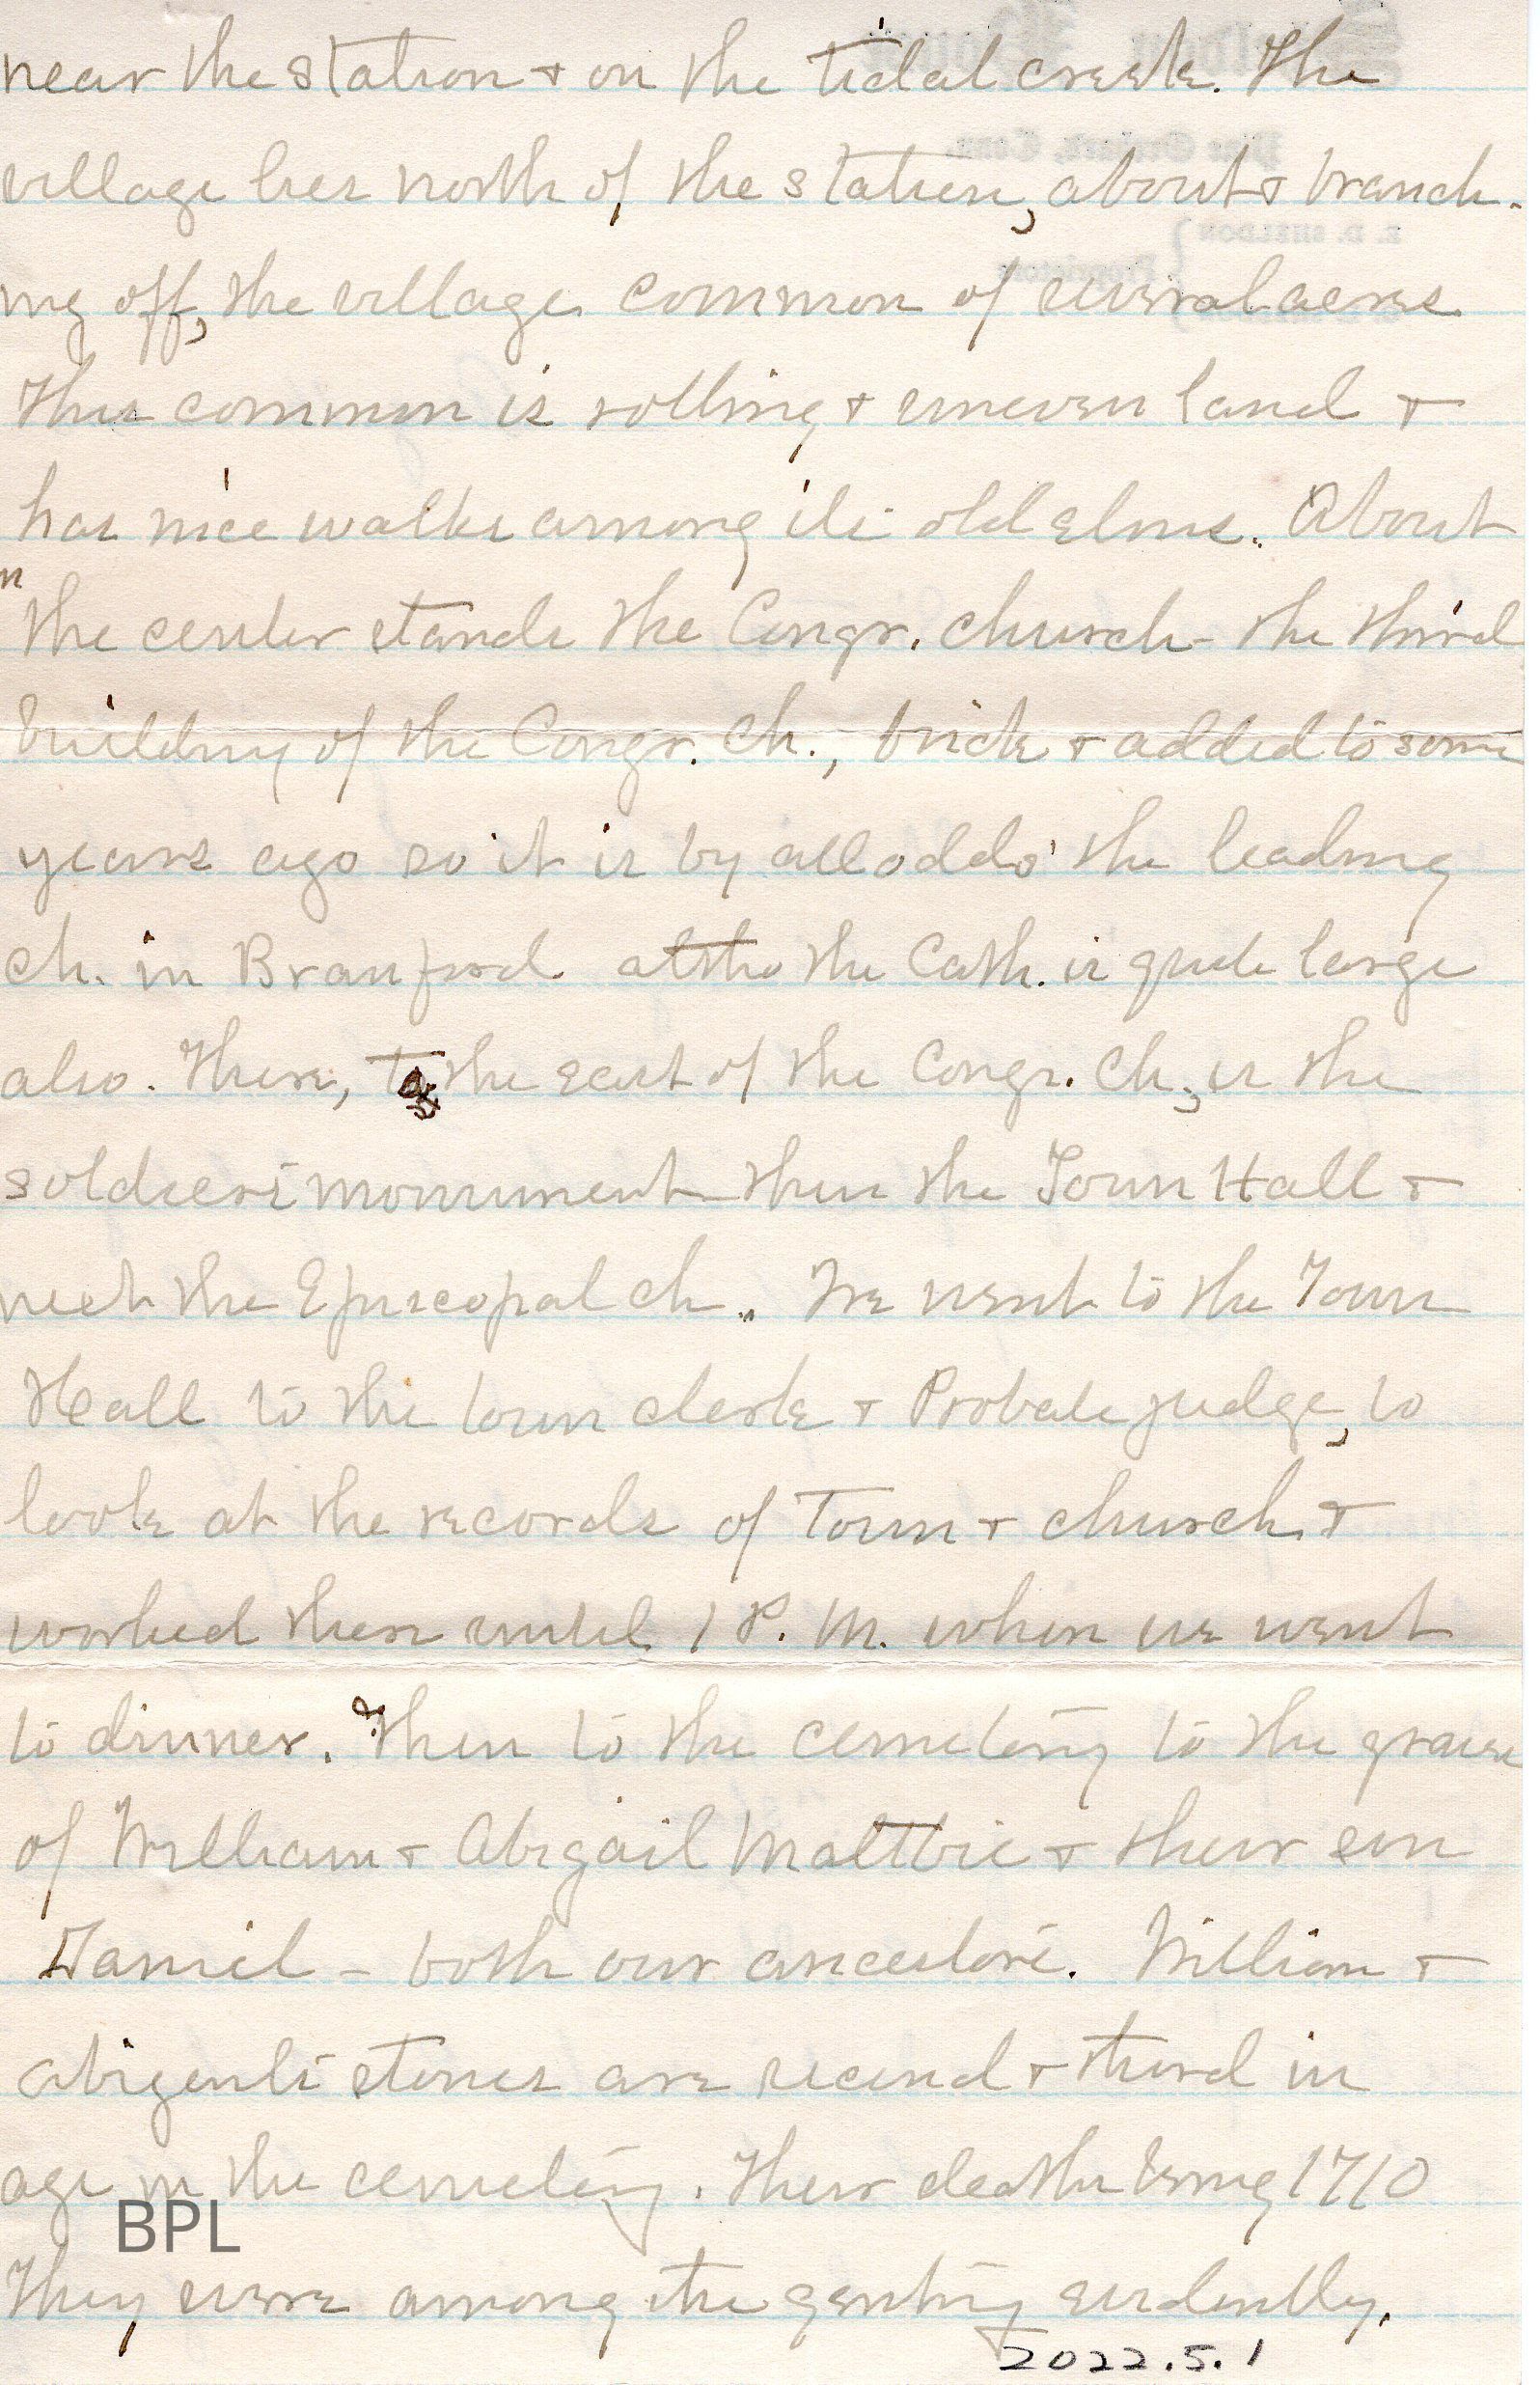 near the station + on the tidal creek. The
village lies north of the station, about + branch-
ing off, the village common of several acres
This common is rolling + uneven land +
has nice walks among its old elms. About
in the center stands the Congr. church - the third
building of the Congr. Ch., brick + added to some
years ago so it is by all odds the leading
ch. in Branford altho the Cath. is quite large
also. There, to the east of the Congr. Ch, is the
soldiers' monument then the Town Hall +
next the Episcopal ch. We went to the Town
Hall to the town clerk + Probate judge, to
look at the records of Town + church +
worked there until 1 P. M. when we went
to dinner. & then to the cemetery to the graves
of William + Abigail Maltbie + their son
Daniel - both our ancestors. William +
Abigail's stones are second + third in
age in the cemetery. Their deaths being 1710
They were among the gentry evidently.
BPL
2022.5.1
E. D. SHELDON
Proprietors
Pine Orchard, Conn.